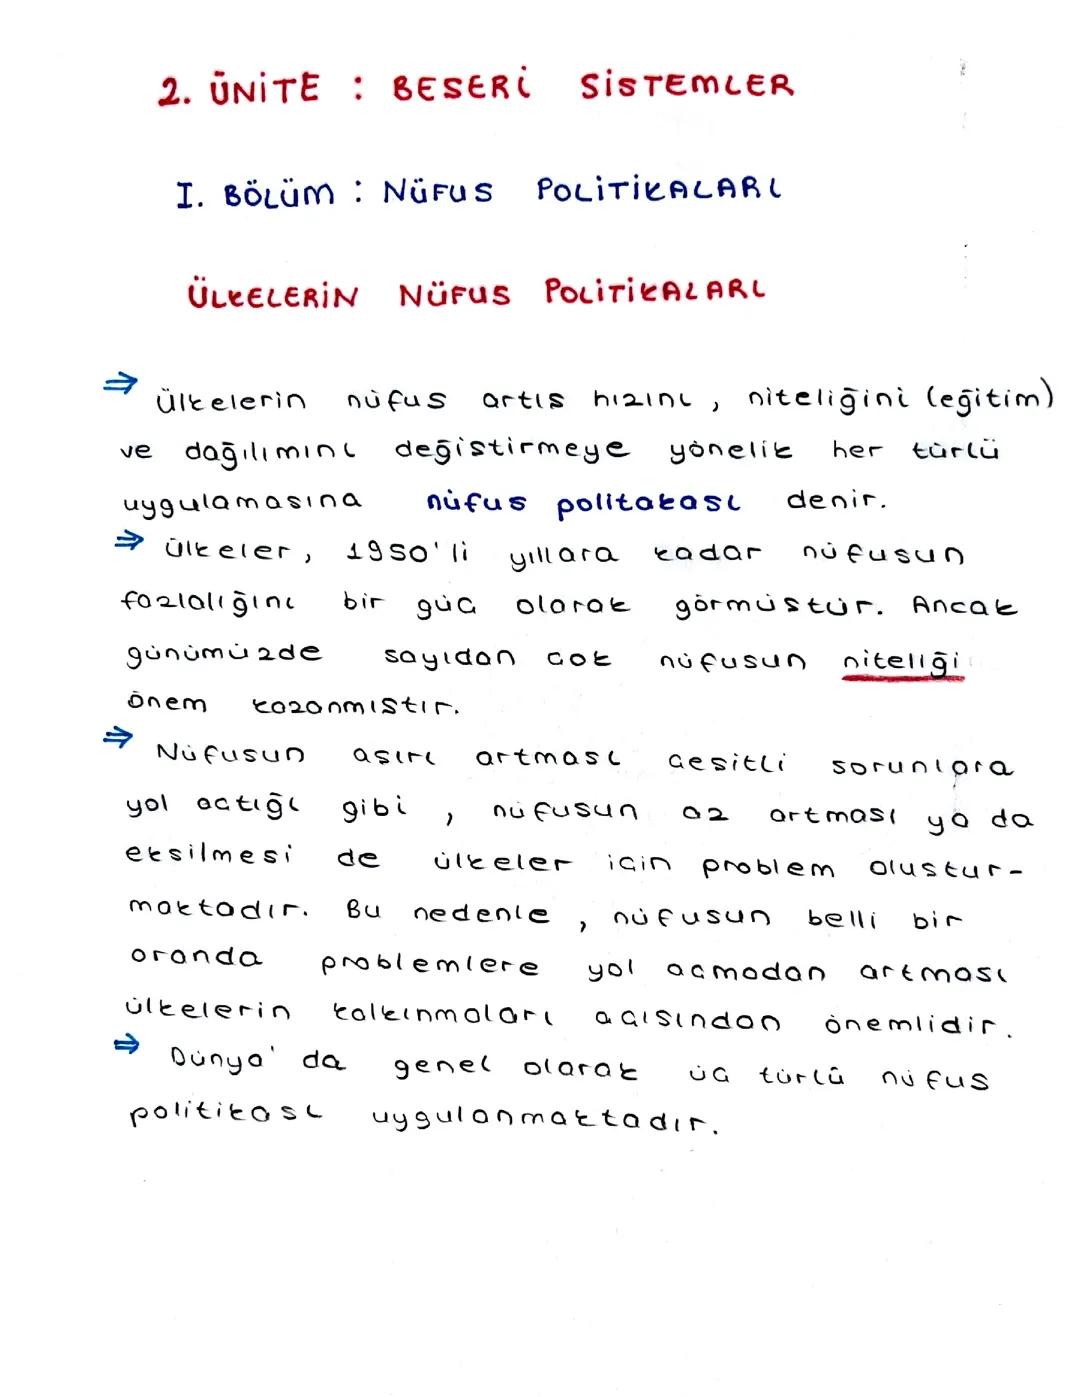 2. ÜNİTE : BESERİ SİSTEMLER
I. BÖLÜM : NÜFUS POLİTİKALARI
ÜLKELERİN NÜFUS POLİTİKALARI
⇒ ülkelerin nüfus artıs hızını, niteliğini (eğitim)
ve dağılımını değistirmeye yönelik her türlü
uygulamasına nüfus politakası denir.
⇒ ülkeler, 1950'li yıllara kadar nüfusun
fazlalığını bir güc olarak görmüstür. Ancak
günümüzde sayıdan cok nüfusun niteliği
önem kazanmıstır.
⇒ Nüfusun asırı artması cesitli sorunlara
yol actığı gibi, nüfusun az artması ya da
eksilmesi de ülkeler icin problem olustur-
maktadır. Bu nedenle, nüfusun belli bir
oranda problemlere yol acmadan artması
ülkelerin kalkınmaları acısından önemlidir.
⇒ Dünya'da genel olarak üc türlü nüfus
politikası uygulanmaktadır.